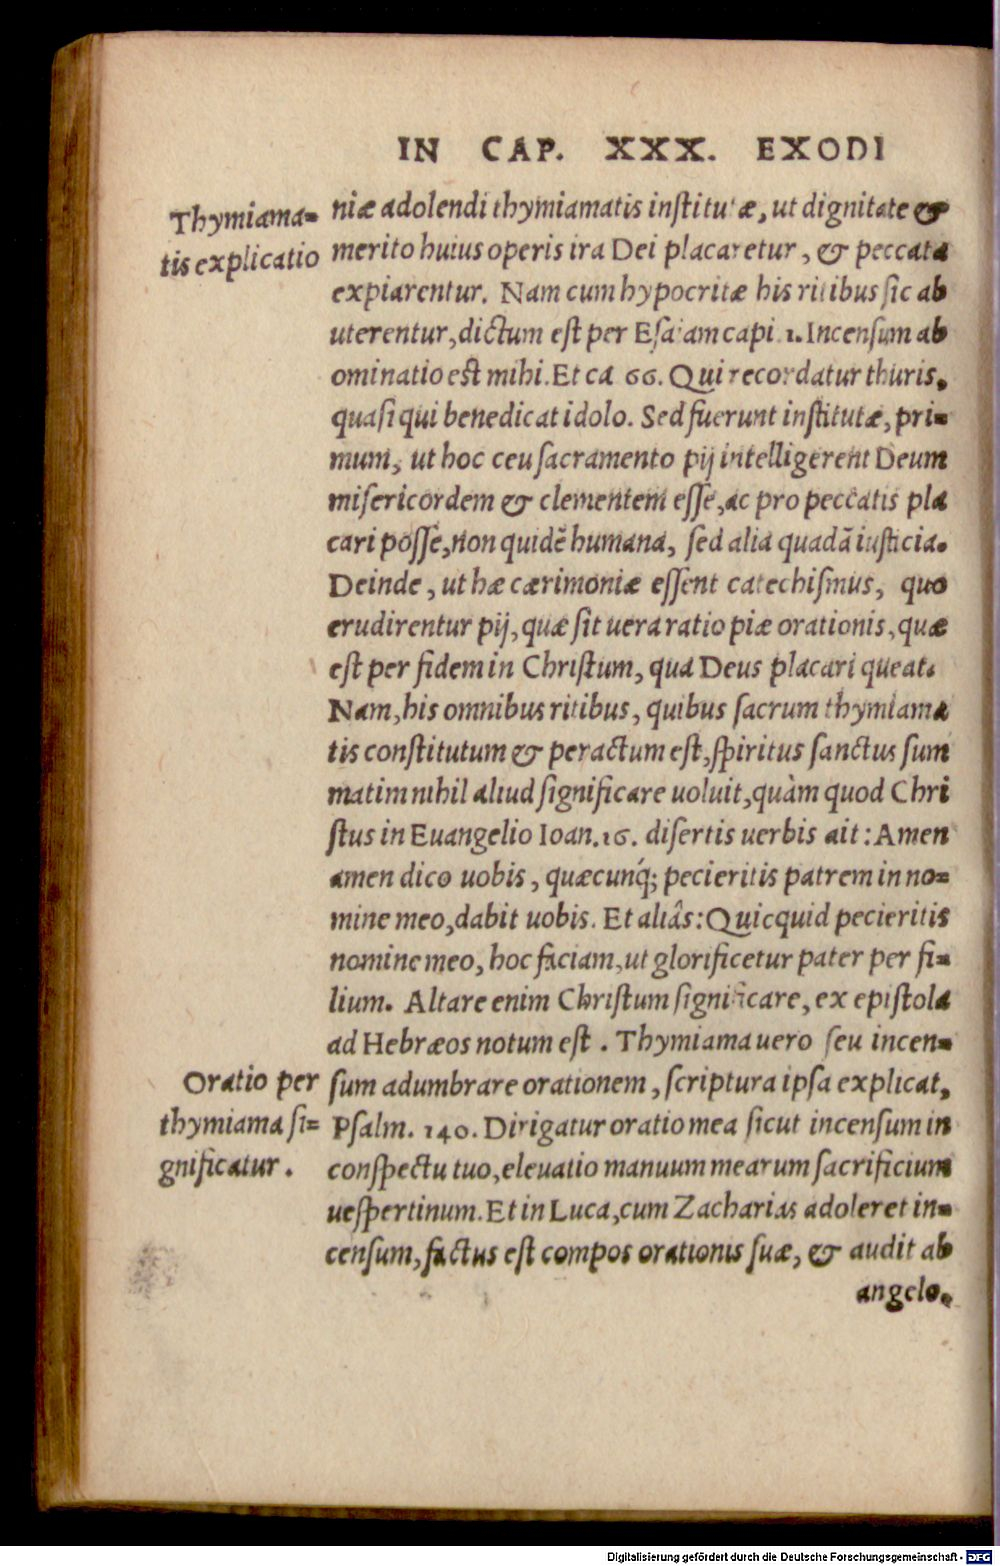 IN CAP. XXX. EXODI
Thymiama=
tis explicatio
niæ adolendi thymiamatis institutæ, ut dignitate &
merito huius operis ira Dei placaretur, & peccata
expiarentur. Nam cum hypocritæ his ritibus sic ab
uterentur, dictum est per Esaiam capi. 1. Incensum ab
ominatio est mihi. Et ca 66. Qui recordatur thuris,
quasi qui benedicat idolo. Sed fuerunt institutæ, pri=
mum, ut hoc ceu sacramento pij intelligerent Deum
misericordem & clementem esse, ac pro peccatis pla
cari posse, non quidẽ humana, sed alia quadã iusticia.
Deinde, ut hæ cærimoniæ essent catechismus, quo
erudirentur pij, quæ sit uera ratio piæ orationis, quæ
est per fidem in Christum, qua Deus placari queat.
Nam, his omnibus ritibus, quibus sacrum thymiama
tis constitutum & peractum est, spiritus sanctus sum
matim nihil aliud significare uoluit, quàm quod Chri
stus in Euangelio Ioan. 16. disertis uerbis ait: Amen
amen dico uobis, quæcunq́; pecieritis patrem in no=
mine meo, dabit uobis. Et aliâs: Quicquid pecieritis
nomine meo, hoc faciam, ut glorificetur pater per fi=
lium. Altare enim Christum significare, ex epistola
ad Hebræos notum est. Thymiama uero seu incen=
Oratio per
thymiama si=
gnificatur.
sum adumbrare orationem, scriptura ipsa explicat,
Psalm. 140. Dirigatur oratio mea sicut incensum in
conspectu tuo, eleuatio manuum mearum sacrificium
uespertinum. Et in Luca, cum Zacharias adoleret in=
censum, factus est compos orationis suæ, & audit ab
angelo.
Digitalisierung gefördert durch die Deutsche Forschungsgemeinschaft - DFG